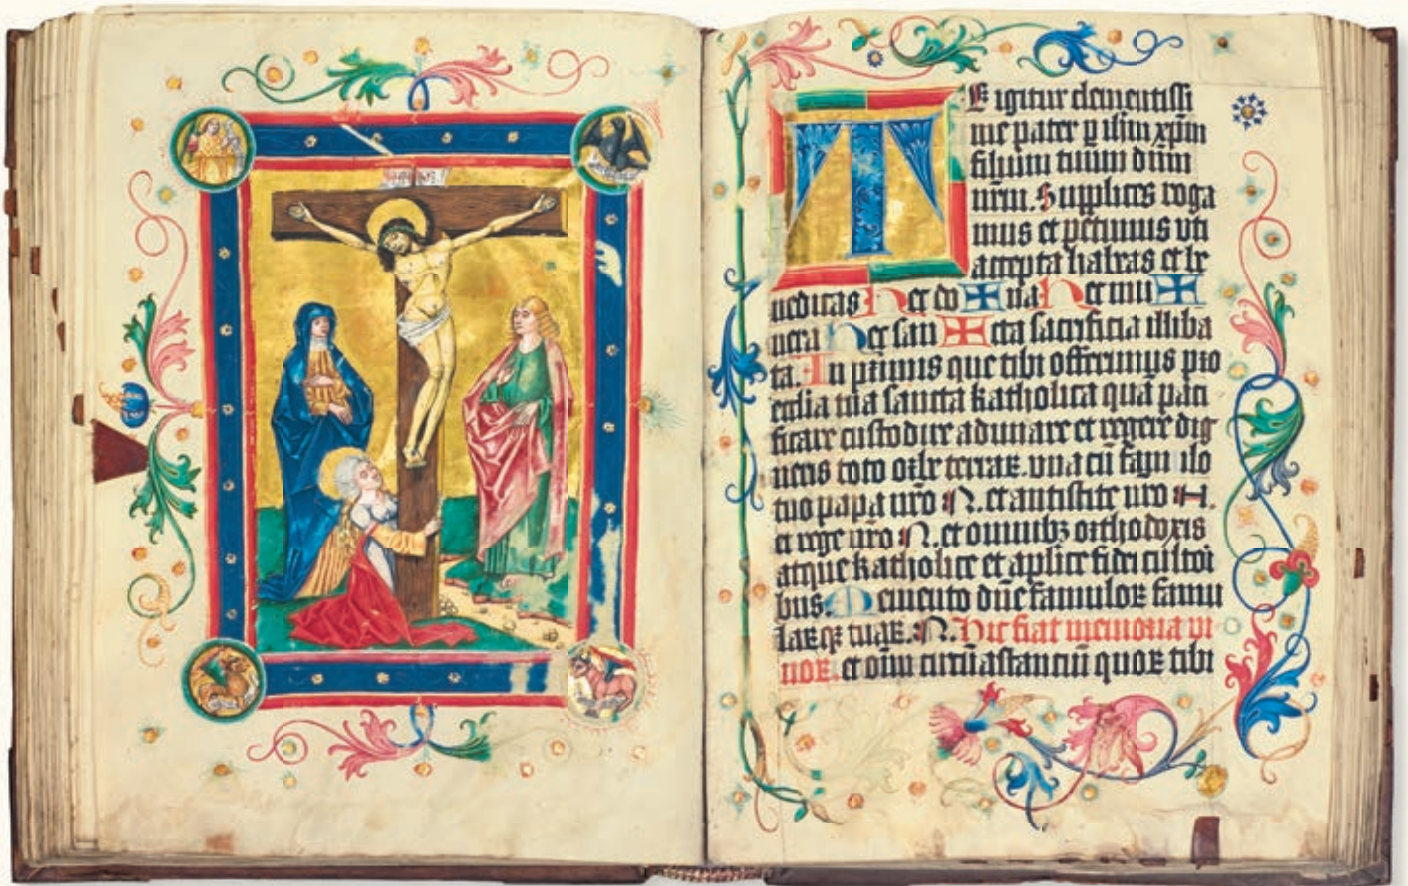 TE igitur clementissi
me pater ꝑ ihm̄ xp̄m
filium tuum dn̄m
nr̄m. Supplices roga
mus et petimus vti
accepta habeas et be
nedicas Hec do ✠ na Hec mu ✠
nera Hec san ✠ cta sacrificia illiba
ta. In primis que tibi offerimus pro
ecclīa tua sancta katholica quā paci
ficare custodire adunare et regere dig
neris toto orbe terraꝝ. vna cū famu lo
tuo papa nr̄o N. et antistite nr̄o N.
et rege nr̄o N. et omnibꝫ orthodoxis
atque katholice et aplīce fidei cultori
bus. Memento dn̄e famuloꝝ famu
laꝝqꝫ tuaꝝ. N. Hic fiat memoria vi
uoꝝ. et oīm circūastanciū quoꝝ tibi